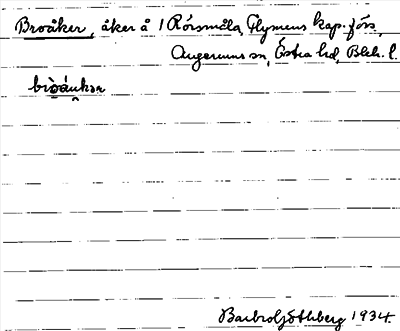 Broåker, åker å 1 Rörsmåla, Flymens kap.förs,
Augerums sn, Östra hd, Blek. l.
Barbro Söthberg 1934.